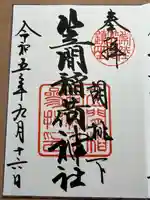 奉拝
胡桃下
笠間稲荷神社
令和五年九月十六日